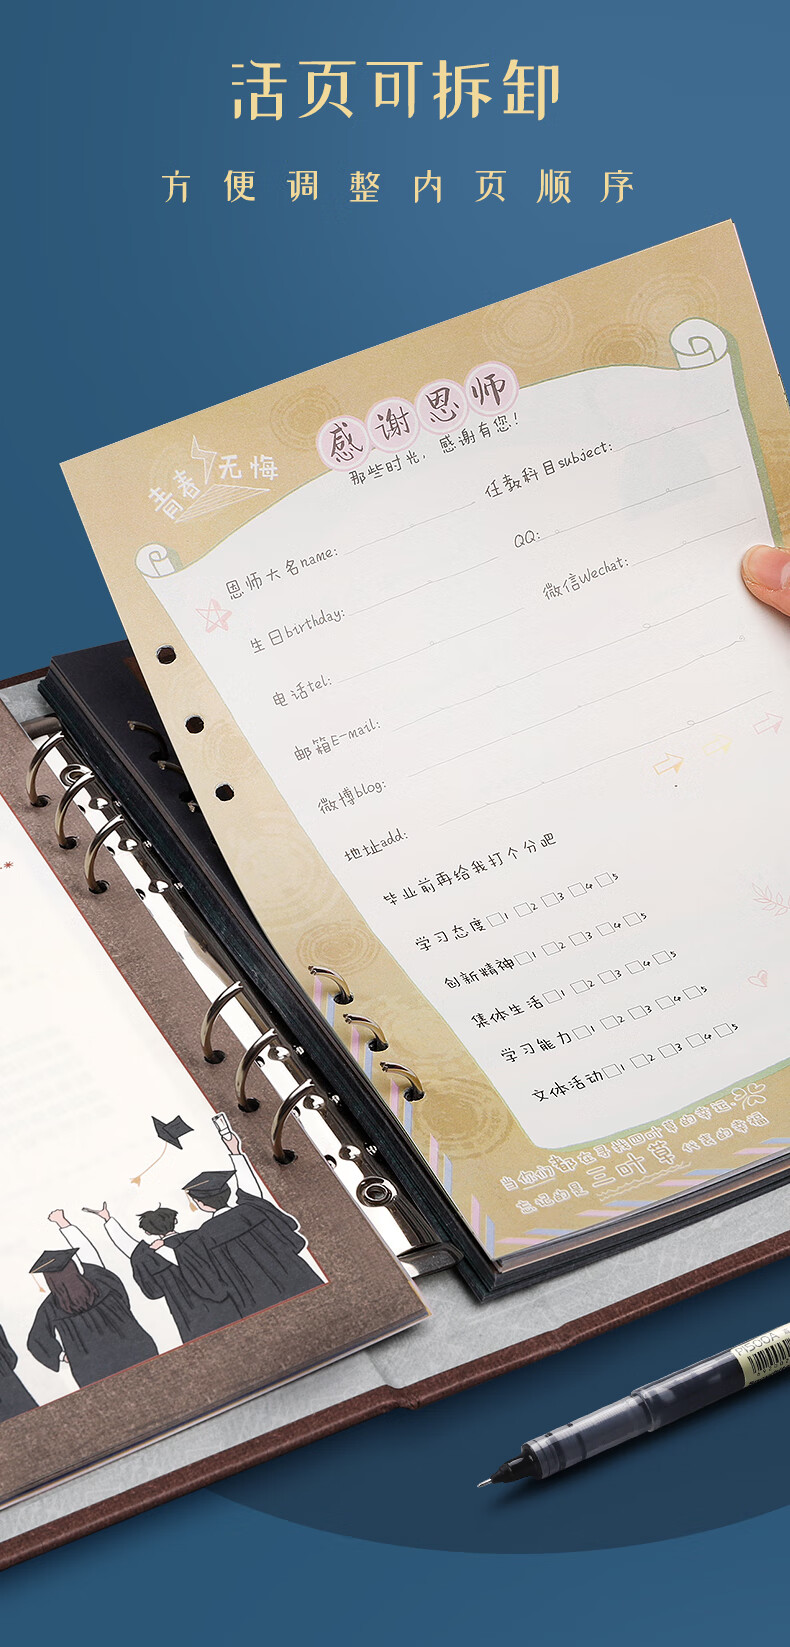 活页可拆卸
方便调整内页顺序
感谢恩师
那些时光，感谢有您！
青春无悔
恩师大名name: 任教科目subject:
生日birthday: QQ:
电话tel: 微信Wechat:
邮箱E-mail:
微博blog:
地址add:
毕业前再给我打个分吧
学习态度□1 □2 □3 □4 □5
创新精神□1 □2 □3 □4 □5
集体生活□1 □2 □3 □4 □5
学习能力□1 □2 □3 □4 □5
文体活动□1 □2 □3 □4 □5
当你们都在寻找四叶草的幸运，
忘记的是三叶草代表的幸福
P1500A